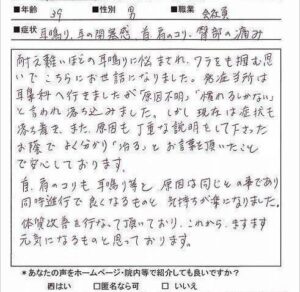 ■年齢 39 ■性別 男 ■職業 会社員
■症状 耳鳴り、耳の閉塞感、首、肩のコリ、臀部の痛み
耐え難いほどの耳鳴りに悩まされ、ワラをも掴む思
いでこちらにお世話になりました。発症当初は
耳鼻科へ行きましたが「原因不明」「慣れるしかない」
と言われ落ち込みました。しかし現在は症状も
落ち着き、また、原因も丁重な説明をして下さった
お陰でよく分かり"治る"とお言葉を頂いたこと
で安心しております。
首、肩のコリも耳鳴り等と原因は同じとの事であり
同時進行で良くなるものと気持ちが楽になりました。
体質改善を行なって頂いており、これから、ますます
元気になるものと思っております。
*あなたの声をホームページ・院内等で紹介しても良いですか？
はい □匿名なら可 □いいえ